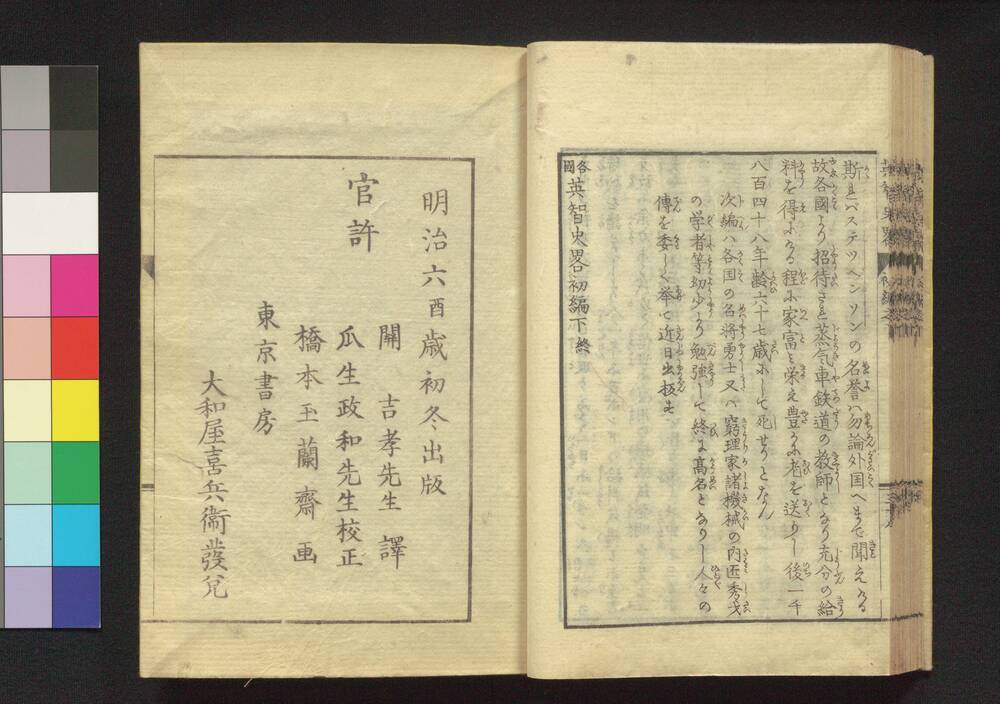 斯れバステツヘンソンの名誉ハ勿論外国へまで聞えける
故各國より招待され蒸気車鉄道の教師となり充分の給
料を得ける程に家富ミ栄え豊かに老を送りし後一千
八百四十八年齢六十七歳にして死せりとなん
次編ハ各国の名将勇士又ハ窮理家諸機械の巧匠秀才
の学者等幼少より勉強して終に髙名となりし人々の
傳を委しく挙て近日出板す
各國英智史畧初編下終
明治六酉歳初冬出版
官許
開吉孝先生 譯
瓜生政和先生校正
橋本玉蘭齋 画
東京書房
大和屋喜兵衞發兌